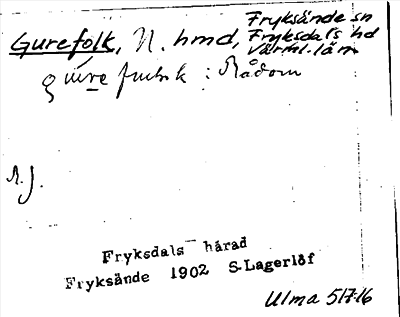 Gurefolk, N. hmd, Fryksände sn
Fryksdals hd
Värml. län
i Rådom
N.J.
Fryksdals härad
Fryksände 1902 S. Lagerlöf
Ulma 517:16